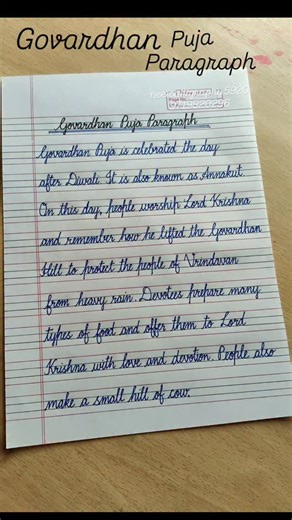 Govardhan Puja
Paragraph
Govardhan Puja Paragraph
Govardhan Puja is celebrated the day
after Diwali. It is also known as Annakut.
On this day, people worship Lord Krishna
and remember how he lifted the Govardhan
Hill to protect the people of Vrindavan
from heavy rain. Devotees prepare many
types of food and offer them to Lord
Krishna with love and devotion. People also
make a small hill of cow.